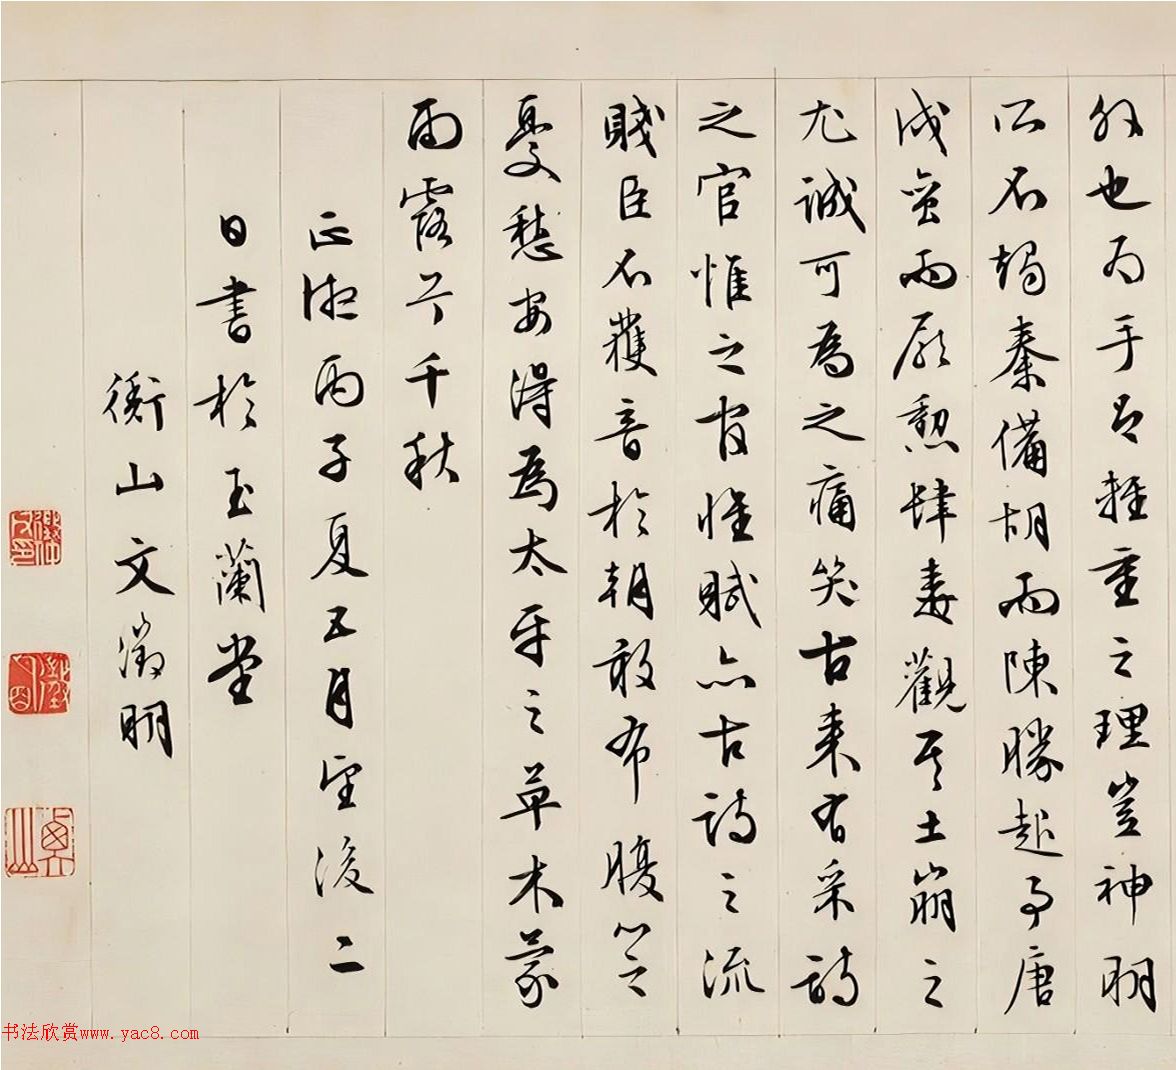 也為乎輕重之理豈神明
所不蠲秦備胡而陳勝起事唐
戍蠻而勛肆毒觀其土崩之
尤誠可為之痛哭古来有采詩
之官惟之官惟賦亦古詩之流
賤臣不獲音於朝敢布腹
憂愁安得為太平之草木蒙
雨露兮千秋
正德丙子夏五月望後二
日書於玉蘭堂
衡山文徵明
书法欣赏www.yac8.com